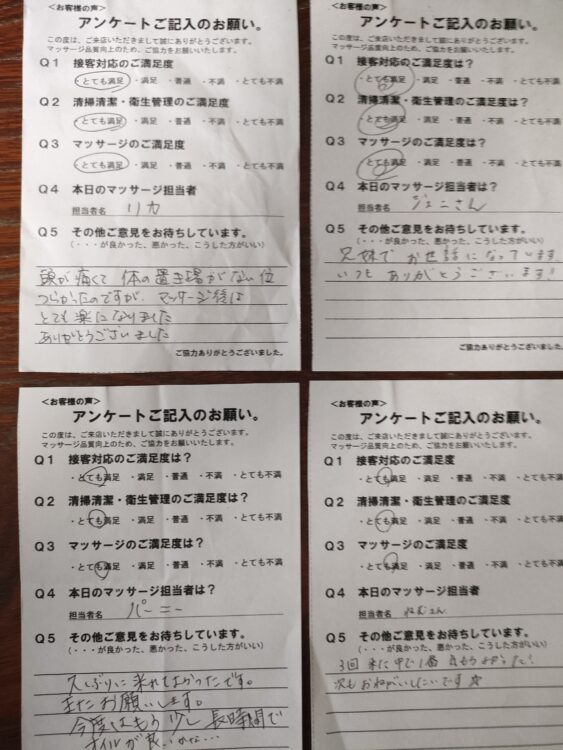 <お客様の声>
アンケートご記入のお願い。
この度は、ご来店いただきまして誠にありがとうございます。
マッサージ品質向上のため、ご協力をお願いいたします。
Q1 接客対応のご満足度
・とても満足 ・満足 ・普通 ・不満 ・とても不満
Q2 清掃清潔・衛生管理のご満足度
・とても満足 ・満足 ・普通 ・不満 ・とても不満
Q3 マッサージのご満足度
・とても満足 ・満足 ・普通 ・不満 ・とても不満
Q4 本日のマッサージ担当者
担当者名 リカ
Q5 その他ご意見をお待ちしています。
(・・・が良かった、悪かった、こうした方がいい)
頭が痛くて 体の置き場がない位
つらかったのですが、マッサージ後は
とても楽になりました
ありがとうございました
ご協力ありがとうございました。
<お客様の声>
アンケートご記入のお願い。
この度は、ご来店いただきまして誠にありがとうございます。
マッサージ品質向上のため、ご協力をお願いいたします。
Q1 接客対応のご満足度は?
・とても満足 ・満足 ・普通 ・不満 ・とても不満
Q2 清掃清潔・衛生管理のご満足度は?
・とても満足 ・満足 ・普通 ・不満 ・とても不満
Q3 マッサージのご満足度は?
・とても満足 ・満足 ・普通 ・不満 ・とても不満
Q4 本日のマッサージ担当者は?
担当者名 ジェニさん
Q5 その他ご意見をお待ちしています。
(・・・が良かった、悪かった、こうした方がいい)
兄妹で お世話になっています
いつも ありがとうございます!
ご協力ありがとうございました。
<お客様の声>
アンケートご記入のお願い。
この度は、ご来店いただきまして誠にありがとうございます。
マッサージ品質向上のため、ご協力をお願いいたします。
Q1 接客対応のご満足度は?
・とても満足 ・満足 ・普通 ・不満 ・とても不満
Q2 清掃清潔・衛生管理のご満足度は?
・とても満足 ・満足 ・普通 ・不満 ・とても不満
Q3 マッサージのご満足度は?
・とても満足 ・満足 ・普通 ・不満 ・とても不満
Q4 本日のマッサージ担当者は?
担当者名 パーニー
Q5 その他ご意見をお待ちしています。
(・・・が良かった、悪かった、こうした方がいい)
久しぶりに来れてよかったです。
またお願いします。
今度はもう少し長時間で
オイルが良いかな…
<お客様の声>
アンケートご記入のお願い。
この度は、ご来店いただきまして誠にありがとうございます。
マッサージ品質向上のため、ご協力をお願いいたします。
Q1 接客対応のご満足度
・とても満足 ・満足 ・普通 ・不満 ・とても不満
Q2 清掃清潔・衛生管理のご満足度
・とても満足 ・満足 ・普通 ・不満 ・とても不満
Q3 マッサージのご満足度
・とても満足 ・満足 ・普通 ・不満 ・とても不満
Q4 本日のマッサージ担当者
担当者名
Q5 その他ご意見をお待ちしています。
(・・・が良かった、悪かった、こうした方がいい)
3回 来た中で1番
次もおねがいしたいです☆